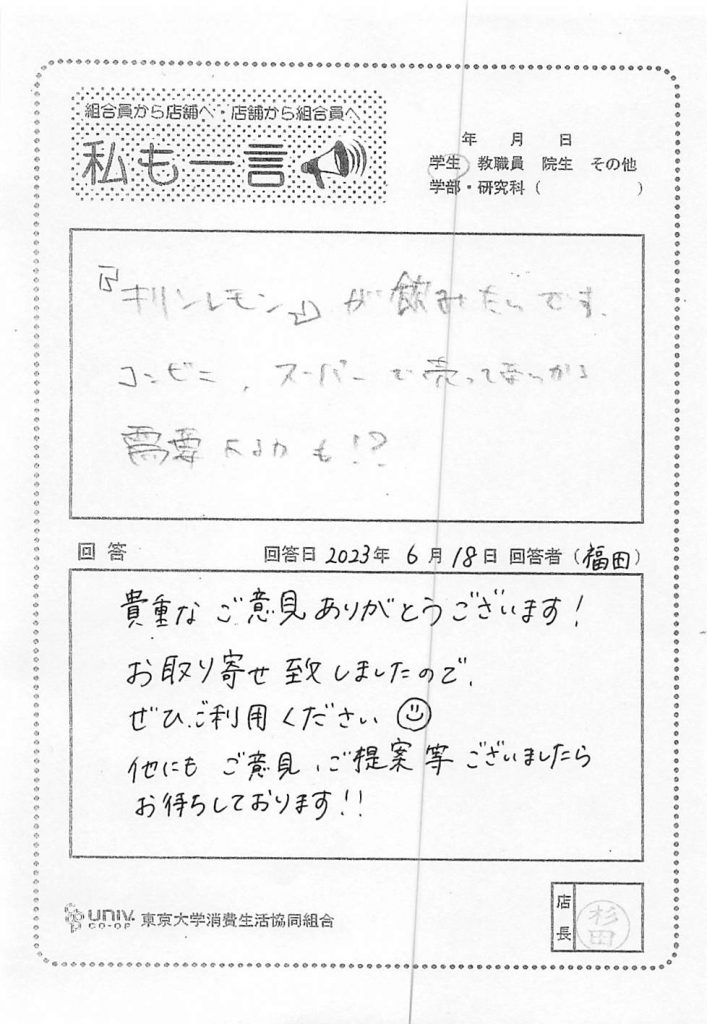 組合員から店舗へ・店舗から組合員へ
私も一言
年 月 日
学生 教職員 院生 その他
学部・研究科（ ）
『キリンレモン』が飲みたいです。
コンビニ、スーパーで売ってないから
需要あるかも!?
回答 回答日 2023年 6月 18日 回答者（福田）
貴重なご意見ありがとうございます！
お取り寄せ致しましたので、
ぜひ、ご利用ください
他にもご意見、ご提案等ございましたら
お待ちしております!!
UNIV. CO-OP 東京大学消費生活協同組合
店長 杉田